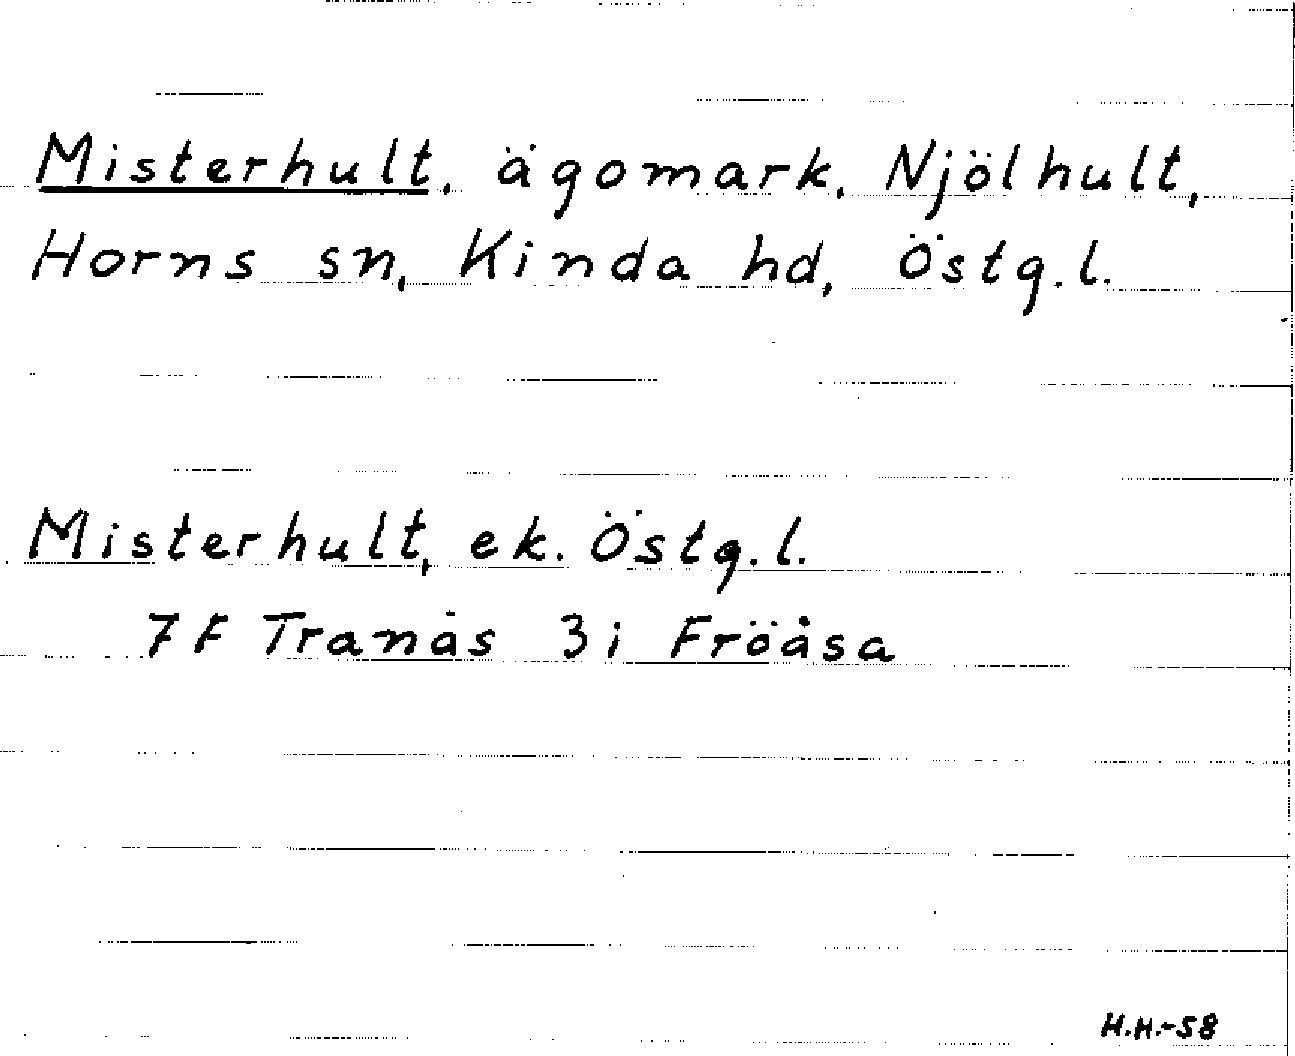 Misterhult, ägomark, Njölhult,
Horns sn, Kinda hd, Östg.l.
Misterhult, ek. Östg.l.
7F Tranås 3i Fröåsa
H.H.-58